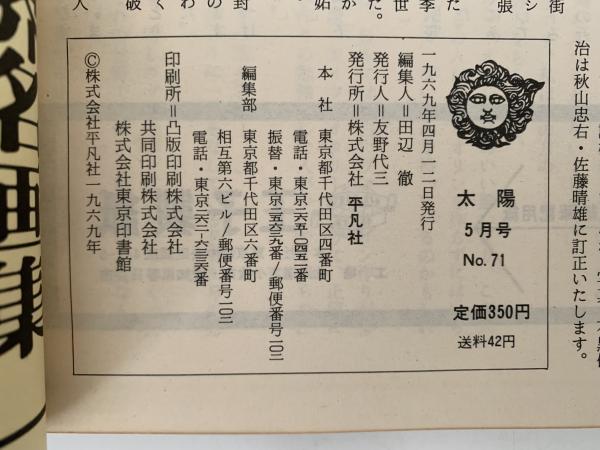 街
シ
張
た
季
世
た。
が
妬
封
わ
く
破
人
治は秋山忠右・佐藤晴雄に訂正いたします。
太陽
5月号
No.71
定価350円
送料42円
一九六九年四月一二日発行
編集人＝田辺 徹
発行人＝友野代三
発行所＝株式会社 平凡社
本社 東京都千代田区四番町
電話・東京二六五―〇四五一番
振替・東京二九六三九番/郵便番号一〇二
編集部 東京都千代田区六番町
相互第六ビル/郵便番号一〇二
電話・東京二六二―六三三六番
印刷所＝凸版印刷株式会社
共同印刷株式会社
株式会社東京印書館
©株式会社平凡社一九六九年
名画集